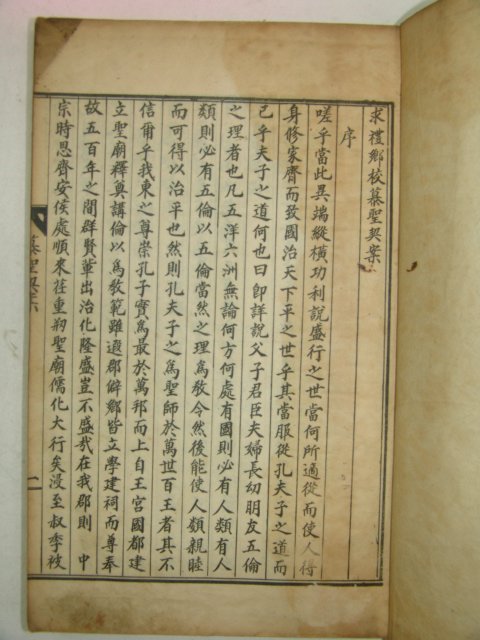 求禮鄉校慕聖契案
序
嗟乎當此異端縱橫功利說盛行之世當何所適從而使人得
身修家齊而致國治天下平之世乎其當服從孔夫子之道而
已乎夫子之道何也曰卽詳說父子君臣夫婦長幼朋友五倫
之理者也凡五洋六洲無論何方何處有國則必有人類有人
類則必有五倫以五倫當然之理爲敎今然後能使人類親睦
而可得以治平也然則孔夫子之爲聖師於萬世百王者其不
信爾乎我東之尊崇孔子實爲最於萬邦而上自王宮國都建
立聖廟釋奠講倫以爲敎範雖遐郡僻鄉皆立學建祠而尊奉
故五百年之間群賢輩出治化隆盛豈不盛哉在我郡則 中
宗時恩齊安侯處順來莅重刱聖廟儒化大行矣漫至叔季被
慕聖契案
二